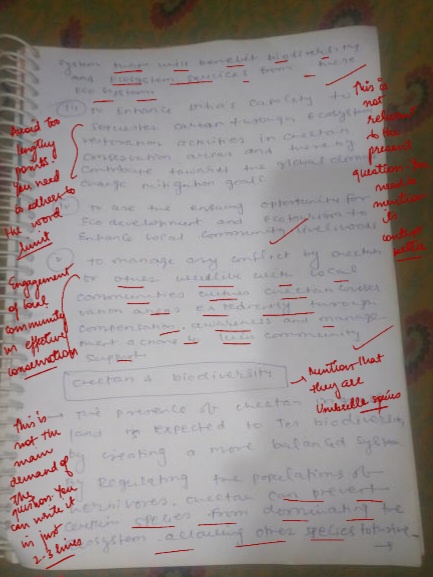 System them will benefit biodiversity
and Ecosystem Services from these
Eco System
(iii) To Enhance India's capacity to
Sequester carbon through Ecosystem
restoration activities in cheetah
Conservation areas and thereby
Contribute towards the global climate
change mitigation goals
to use the ensuing opportunity for
Eco development and Ecotourism to
Enhance local community livelihoods
to manage any conflict by cheetah
or other wildlife with local
communities within cheetah conser
vation areas expediently through
compensation, awareness and manage
ment actions to community
Support
cheetah & biodiversity
The presence of cheetah in
land is expected to biodiversity
by creating a more balanced system
By Regulating the populations of
hernivores, cheetah can prevent
certain species from dominating the
ecosystem allowing other species to
Avoid too
lengthy
points
You need
to adhere to
the word
limit
This is
not
relevant
to the
present
question
need to
mention
it
Engagement
of local
community
in effective
conservation
Mention that
they are
Umbrella species
This is
not the
main
demand of
this
question. You
can write it
in just
2-3 lines